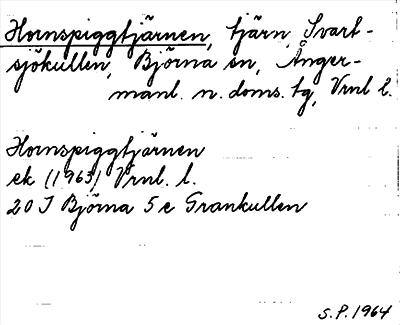 Hornspiggtjärnen, tjärn, Svart-
sjökullen, Björna sn, Ånger-
manl. n. doms. tg, Vrnl l.
Hornspiggtjärnen
ek (1963) Vrnl. l.
20 J Björna 5 e Grankullen
S.P. 1964